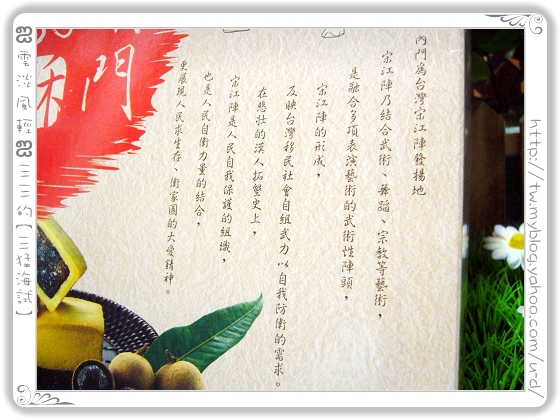 內門為台灣宋江陣發揚地
宋江陣乃結合武術、舞蹈、宗教等藝術，
是融合多項表演藝術的武術性陣頭，
宋江陣的形成，
反映台灣移民社會自組武力以自我防衛的需求。
在悲壯的漢人拓墾史上，
宋江陣是人民自我保護的組織，
也是人民自衛力量的結合，
更展現人民求生存、衛家園的大愛精神。
門
雲淡風輕 三三的【三猛海試】
http://tw.myblog.yahoo.com/u-d/